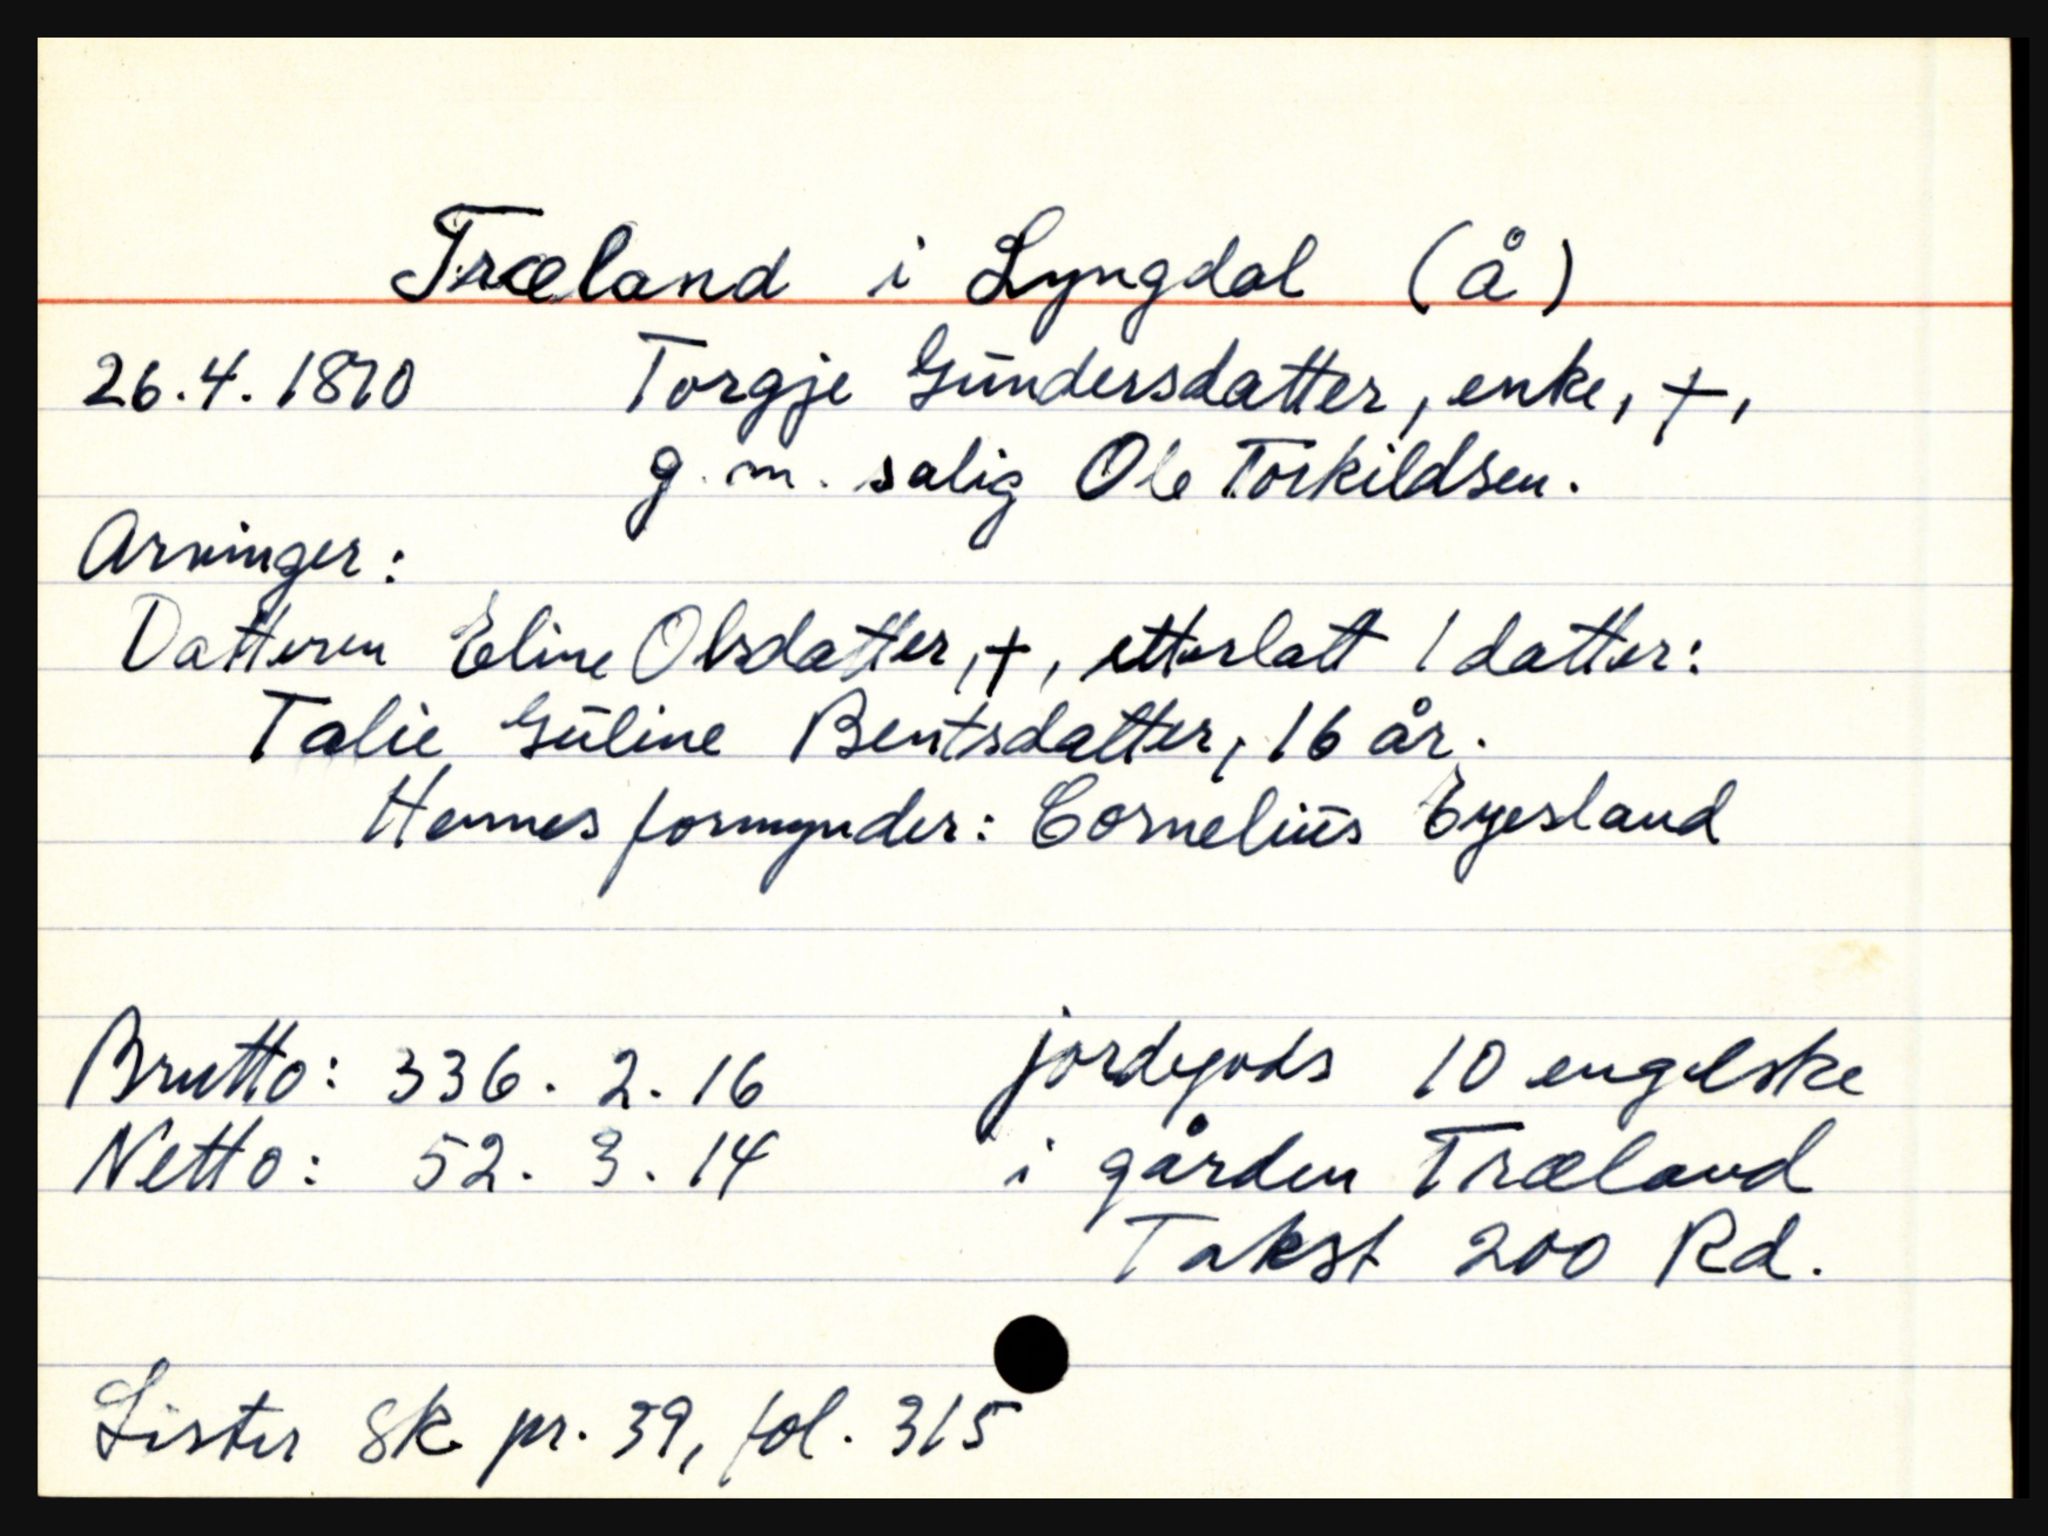 Træland i Lyngdal (Å)
26.4.1870 Torgje Gundersdatter, enke, †,
g.m. salig Ole Torkildsen.
Arvinger:
Datteren Eline Olsdatter, †, etterlatt 1 datter:
Talie Guline Bentsdatter, 16 år.
Hennes formynder: Cornelius Eyesland
Brutto: 336. 2. 16 jordegods 10 engelske
Netto: 52. 3. 14 i gården Træland
Takst 200 Rd.
Lister Sk. pr. 39, fol. 315